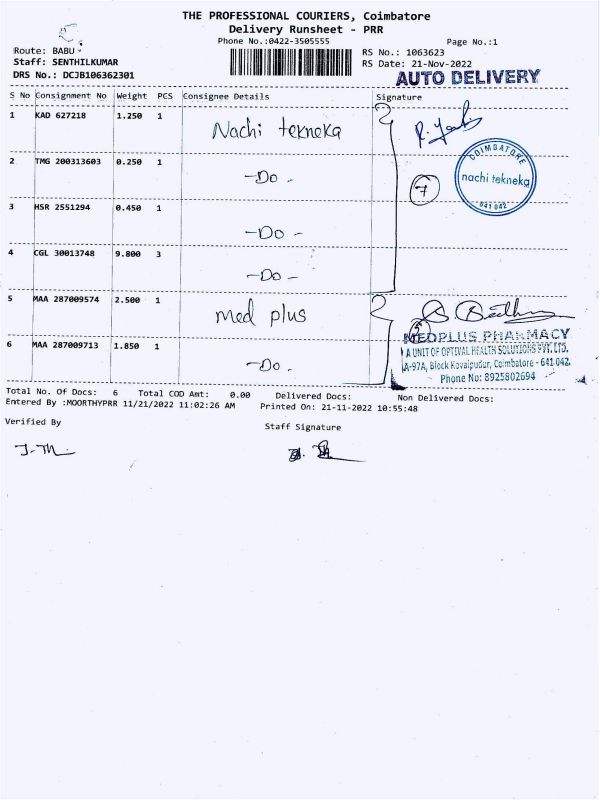 THE PROFESSIONAL COURIERS, Coimbatore
Delivery Runsheet - PRR
Phone No.:0422-3505555
Page No.:1
Route: BABU
Staff: SENTHILKUMAR
DRS No.: DCJB106362301
RS No.: 1063623
RS Date: 21-Nov-2022
AUTO DELIVERY
S No Consignment No Weight PCS Consignee Details Signature
1 KAD 627218 1.250 1 Nachi tekneka
2 TMG 200313603 0.250 1 -Do-
3 HSR 2551294 0.450 1 -Do-
4 CGL 30013748 9.800 3 -Do-
COIMBATORE
nachi tekneka
641 042
7
5 MAA 287009574 2.500 1 Med plus
6 MAA 287009713 1.850 1 -Do.
MEDPLUS PHARMACY
A UNIT OF OPTIVAL HEALTH SOLUTIONS PVT. LTD.
A-97A, Block Kovaipudur, Coimbatore - 641 042.
Phone No: 8925802694
Total No. Of Docs: 6 Total COD Amt: 0.00 Delivered Docs: Non Delivered Docs:
Entered By :MOORTHYPRR 11/21/2022 11:02:26 AM Printed On: 21-11-2022 10:55:48
Verified By
Staff Signature